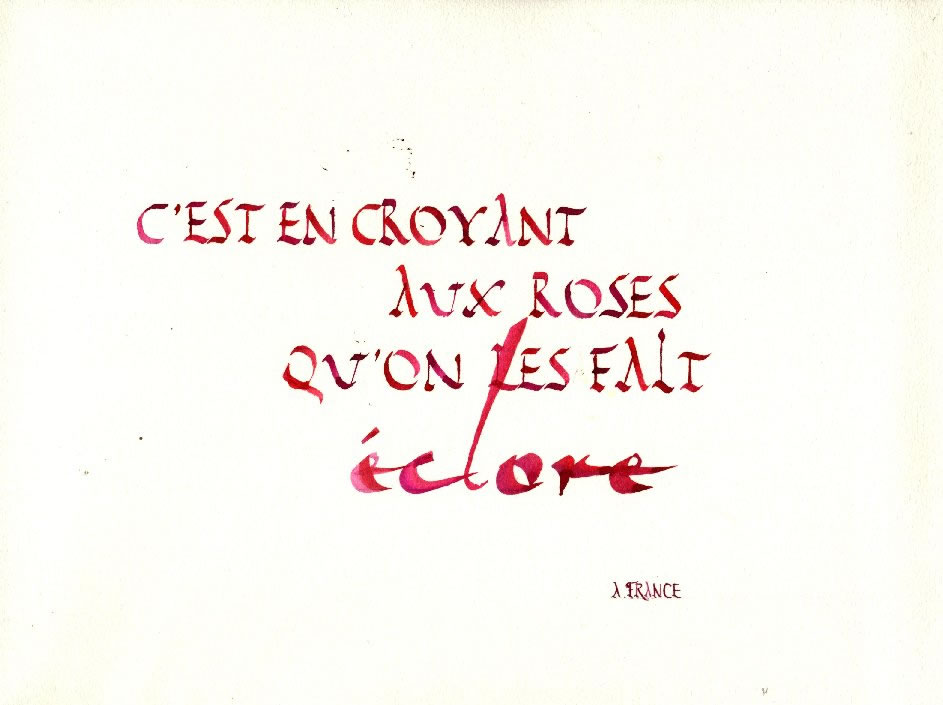 C'EST EN CROYANT
AUX ROSES
QU'ON LES FAIT
éclore
A. FRANCE